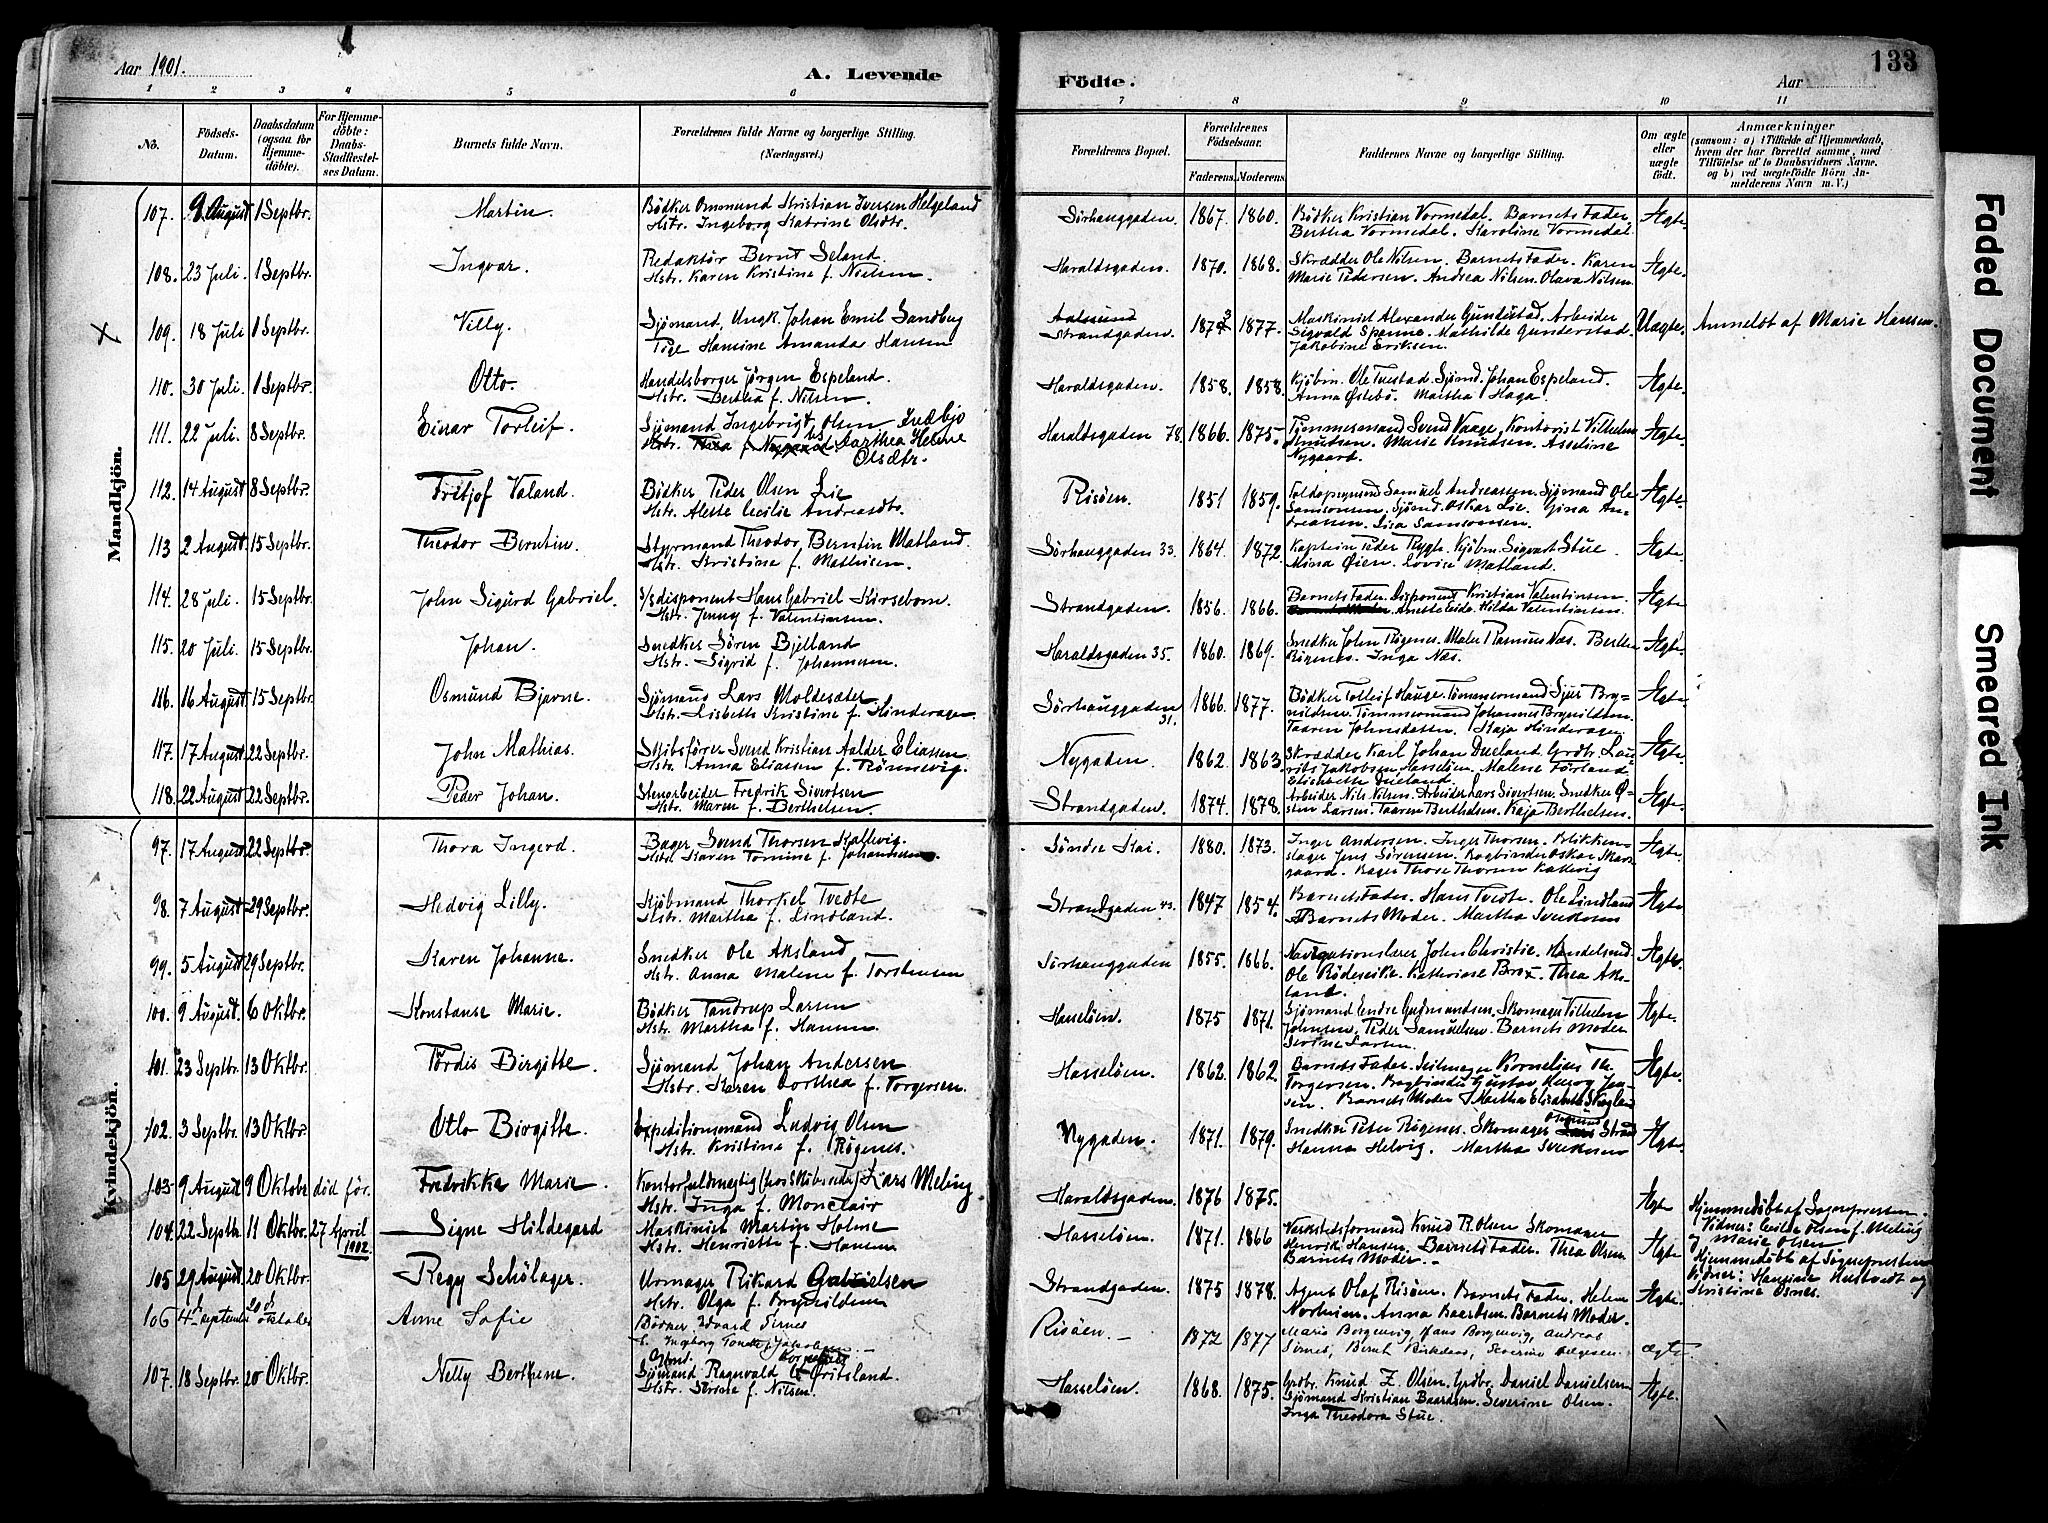 Aar 1901.
A. Levende
Födte.
Aar
133
1 2 3 4 5 6 7 8 9 10 11
No.
Födsels-Datum.
Daabsdatum (ogsaa for Hjemmedöbte).
For Hjemmedöbte: Daabs-Stadfæstelses Datum.
Barnets fulde Navn.
Forældrenes fulde Navne og borgerlige Stilling. (Næringsvei.)
Forældrenes Bopæl.
Forældrenes Födselsaar.
Faderens. Moderens.
Faddernes Navne og borgerlige Stilling.
Om ægte eller uægte födt.
Anmærkninger (saasom: a) i Tilfælde af Hjemmedaab, hvem der har forrettet samme, med Tilföielse af to Daabsvidners Navne, og b) ved uægtefödte Börn Anmelderens Navn m. V.)
Mandkjön.
107. 9 August 1 Septbr. Martin. Bödker Ommund Kristian Iversen Helgeland
Hstr. Ingeborg Katrine Olsdtr.
Sörhauggaden. 1867. 1860. Bödker Kristian Vormedal. Barnets Fader.
Bertha Vormedal. Karoline Vormedal. Ægte.
108. 23 Juli. 1 Septbr. Ingvar. Redaktör Bernt Seland.
Hstr. Karen Kristine f. Nielsen.
Haraldsgaden. 1870. 1868. Skrædder Ole Nilsen. Barnets Fader. Karen
Marie Pedersen. Andrea Nilsen. Olava Nilsen. Ægte.
X 109. 18 Juli 1 Septbr. Villy. Sjömand, Ungk. Johan Emil Sandberg
Pige Hansine Amanda Hansen
Aalesund
Strandgaden. 1873 1877. Maskinist Alexander Gunderstad. Arbeider
Sigvald Skanne. Mathilde Gunderstad.
Jakobine Eriksen. Uægte. Anmeldt af Marie Hansen.
110. 30 Juli. 1 Septbr. Otto. Handelsborger Jörgen Espeland.
Hstr. Bertha f. Nilsen.
Haraldsgaden. 1858. 1858. Kjöbm. Ole Tuestad. Sjömd. Johan Espeland.
Anna Östebö. Martha Haga. Ægte.
111. 22 Juli. 8 Septbr. Einar Torleif. Sjömand Ingebrigt Olsen Iredbjo
Hstr. Thea f. Nygaard. Marthea Helene
Olsdtr.
Haraldsgaden 78. 1866. 1875. Tömmermand Svend Vaage. Kontorist Vilhelm
Knudsen. Marie Knudsen. Asseline
Nygaard. Ægte.
112. 14 August 8 Septbr. Fritjof Valand. Bödker Peder Olsen Lie
Hstr. Alette Cecilie Andreasdtr.
Risöen. 1851 1859. Toldopsynsmd Samuel Andreassen. Sjömand Ole
Samsonsen. Sjömd. Oskar Lie. Gina An-
dreassen. Lisa Samsonsen. Ægte.
113 2 August. 15 Septbr. Theodor Berntin. Styrmand Theodor Berntin Matland.
Hstr. Kristine f. Mathisen.
Sörhauggaden 33. 1864. 1872. Kaptein Peder Rygh. Kjöbm. Sigvart Stue.
Mina Öien. Lovise Matland. Ægte.
114. 28 Juli. 15 Septbr. John Sigurd Gabriel. S/sdisponent Hans Gabriel Kirsebom.
Hstr. Jenny f. Valentinsen.
Strandgaden. 1856. 1866. Barnets Fader. Disponent Kristian Valentinsen.
Anette Eide. Hilda Valentinsen. Ægte.
115. 20 Juli. 15 Septbr. Johan. Snedker Sören Bjelland
Hstr. Sigrid f. Johannesen.
Haraldsgaden 35. 1860. 1869. Snedker John Rögenes. Maler Rasmus Næs. Berthe
Rögenes. Inga Næs. Ægte.
116. 16 August 15 Septbr. Osmund Bjarne. Sjömand Lars Moldesæter
Hstr. Lisbeth Kristine f. Hinderager
Sörhauggaden 31. 1866. 1877. Bödker Tolleif Hauge. Tömmermand Sjur Bry-
nildsen. Tömmermand Johannes Brynildsen.
Taaren Johnsdatter. Kaja Hinderager. Ægte.
117. 17 August 22 Septbr. John Mathias. Skibsförer Svend Kristian Aalder Eliassen
Hstr. Anna Eliassen f. Rönnevig.
Nygaden. 1862. 1863. Skrædder Karl Johan Dueland. Grdbr. Lau-
rits Jakobsen, Hasselöen. Malene Förland.
Elisabeth Dueland. Ægte.
118. 22 August 22 Septbr. Peder Johan. Stenarbeider Fredrik Sivertsen
Hstr. Maren f. Berthelsen.
Strandgaden. 1874. 1878. Arbeider Nils Nilsen. Arbeider Lars Sivertsen. Snedker Ö-
sten Larsen. Taaren Berthelsen. Kaja Berthelsen. Ægte.
Kvindekjön.
97. 17 August 22 Septbr Thora Ingerd. Bager Svend Thorsen Kallevig.
Hstr. Karen Tomine f. Johannesen.
Söndre Kai. 1880. 1873. Inger Andersen. Inger Thorsen. Blikken-
slager Jens Sörensen. Bogbinder Oskar Skar-
gaard. Bager Thore Thorsen Kallevig Ægte.
98. 7 August. 29 Septbr. Hedvig Lilly. Kjöbmand Thorkel Tvedte
Hstr. Martha f. Lindland.
Strandgaden 43. 1847 1854. Barnets Fader. Hans Tvedte. Ole Lindland
Barnets Moder. Martha Svendsen Ægte.
99. 5 August. 29 Septbr. Karen Johanne. Snedker Ole Aksland
Hstr. Anna Malene f. Torstensen
Sörhauggaden 1855. 1866. Navigationslærer John Christie. Handelsmd.
Ole Rödesike. Katherine Brox. Thea Aks-
land. Ægte.
100. 9 August. 6 Oktbr. Konstanse Marie. Bödker Tandrup Larsen
Hstr. Martha f. Hansen.
Hasselöen. 1875 1871. Sjömand Endre Gudmundsen. Skomager Vilhelm
Johnsen. Peder Samuelsen. Barnets Moder
Serine Larsen. Ægte.
101. 23 Septbr. 13 Oktbr. Tordis Birgitte. Sjömand Johan Andersen
Hstr. Karen Dorthea f. Torgersen.
Hasselöen. 1862. 1862. Barnets Fader. Seilmager Kornelius Th.
Torgersen. Bogbinder Gustav Herzog Jen-
sen. Barnets Moder. Martha Elisabeth Skogland Ægte.
102. 3 Septbr. 13 Oktbr. Otto Birgitte. Expeditionsmand Ludvig Olsen
Hstr. Kristine f. Rögenes.
Nygaden. 1871. 1879. Snedker Peter Rögenes. Skomager Strand
Hanna Helvig. Martha Svendsen Ægte.
103. 9 August 9 Oktobr död för. Fredrikke Marie. Kontorfuldmegtig (hos Skibsreder) Lars Meling.
Hstr. Inga f. Monclair
Haraldsgaden. 1876 1875. Ægte Hjemmedöbt af Sognepresten.
Vidner: Gilda Olsen f. Meling
og Marie Olsen
104. 22 Septbr 11 Oktbr. 27 April 1902. Signe Hildegard Maskinist Martin Holme
Hstr. Henriette f. Hansen
Hasselöen. 1871. 1866 Verkstedsformand Knud R. Olsen. Skomager
Henrik Hansen. Barnets Fader. Thea Olsen
Barnets Moder. Ægte Hjemmedöbt af Sognepresten
Vidner: Hansine Hustvedt og
Kristine Osnes.
105 29 August 20 Oktbr. Regy Schölager. Urmager Rikard Gabrielsen
Hstr. Olga f. Brynildsen
Strandgaden. 1875 1878. Agent Olaf Risöen. Barnets Fader. Helene
Norheim. Anna Baertsen. Barnets Moder. Ægte.
106 4 september 20 oktober Anne Sofie Bödker Edvard Sirnes
E. Ingeborg Tonette Jakobsen.
Risöen. 1872 1877 Marie Borgenvig, Hans Borgenvig, Andreas
Sirnes, Bernt Birkeland, Severine Helgesen. ægte.
107. 18 Septbr. 20 Oktbr. Netty Berthine. Sjömand Ragnvald Gritsland.
Hstr. Serina f. Nilsen.
Hasselöen. 1868. 1875. Grdbr. Knud Z. Olsen. Grdbr. Daniel Danielsen
Sjömand Kristian Baardsen. Severine Olsen.
Inga Theodora Stue. Ægte.
Faded Document
Smeared Ink